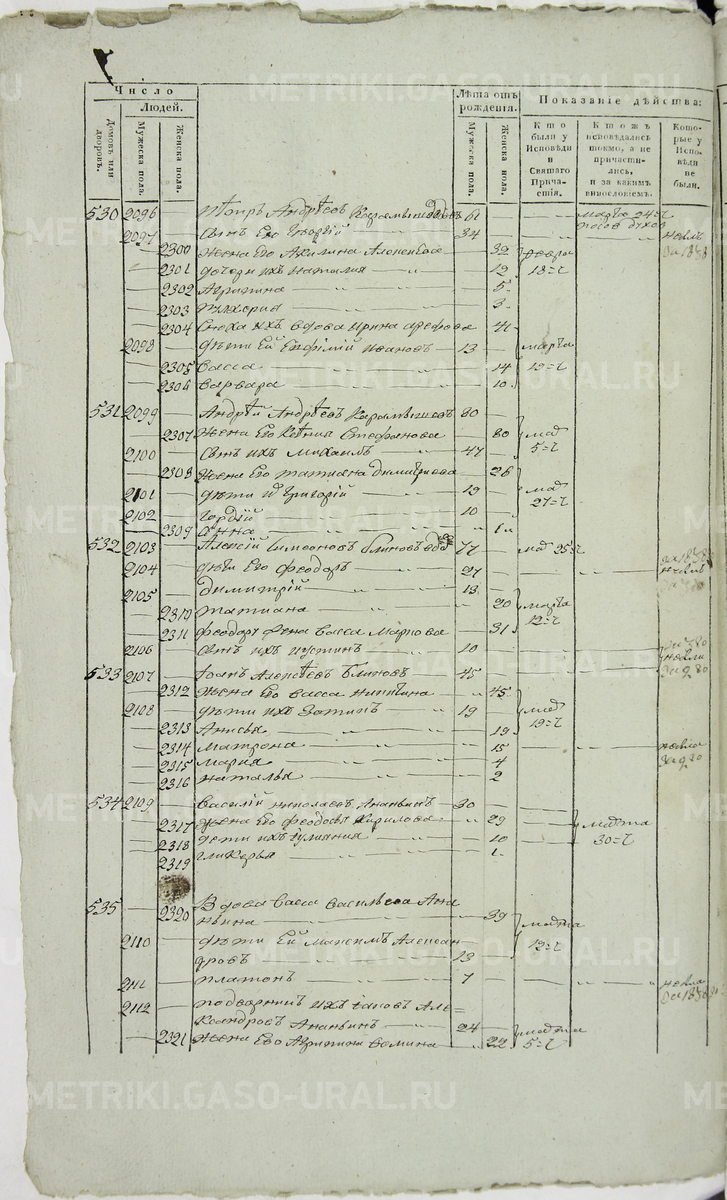 METRIKI.GASO-URAL.RU
Число
Людей.
Домовъ или дворовъ.
Мужеска пола.
Женска пола.
Лѣта отъ рожденія.
Мужеска пола.
Женска пола.
Показаніе дѣйства:
Кто были у Исповѣди и Святаго Причастія.
Ктожъ исповѣдались токмо, а не причастились, и за какимъ винословіемъ.
Которые у Исповѣди не были.
530 2096 Петръ Андрѣевъ Карамышевъ вдовъ 61 марта 24
2097 Сынъ Его Георгій 34
2300 Жена Его Акилина 32
2301 дочери ихъ наталия 12 18
2302 Агрипина 5
2303 Пулхерия 3
2304 Сноха ихъ вдова ирина арефова 41
2098 дѣти Ей Евфимій ивановъ 13 марта
2305 васса 14 19
2306 варвара 10
531 2099 Андрѣй Андрѣевъ Карамышевъ 80
2307 Жена Его Стефанова 80 маія
2100 Сынъ ихъ михаилъ 47 5
2308 Жена Его татиана димитриева 26
2101 дѣти Григорій 19 маія
2102 Гордѣй 10 27
2309 Анна 1
532 2103 Алексій Симеоновъ блиновъ вдовъ 77 маія 25
2104 дѣти Его феодоръ 27
2105 димитрій 13
2310 татиана 20 марта
2311 феодора Жена васса Маркова 31 12
2106 Сынъ ихъ иустинъ 10
533 2107 Іоанъ Алексѣевъ Блиновъ 45
2312 Жена Его васса никитина 45
2108 дѣти ихъ Зотикъ 19 маія
2313 Анисья 19 19
2314 матрона 15 небыла
2315 мария 4
2316 наталья 2
534 2109 василій николаевъ Ананьинъ 30
2317 Жена Его Феодосья Кирилова 29 марта
2318 дети ихъ иулиания 10 30
2319 гликерья 1
535 2320 Вдова васса васильева Ана
ньина 39 марта
2110 дѣти Ей Максимъ Алексан 12
дровъ 13
2111 платонъ 7
2112 подворний ихъ иаковъ Але=
ксандровъ Ананьинъ 24 марта
2321 Жена Его Агрипина Фомина 22 5